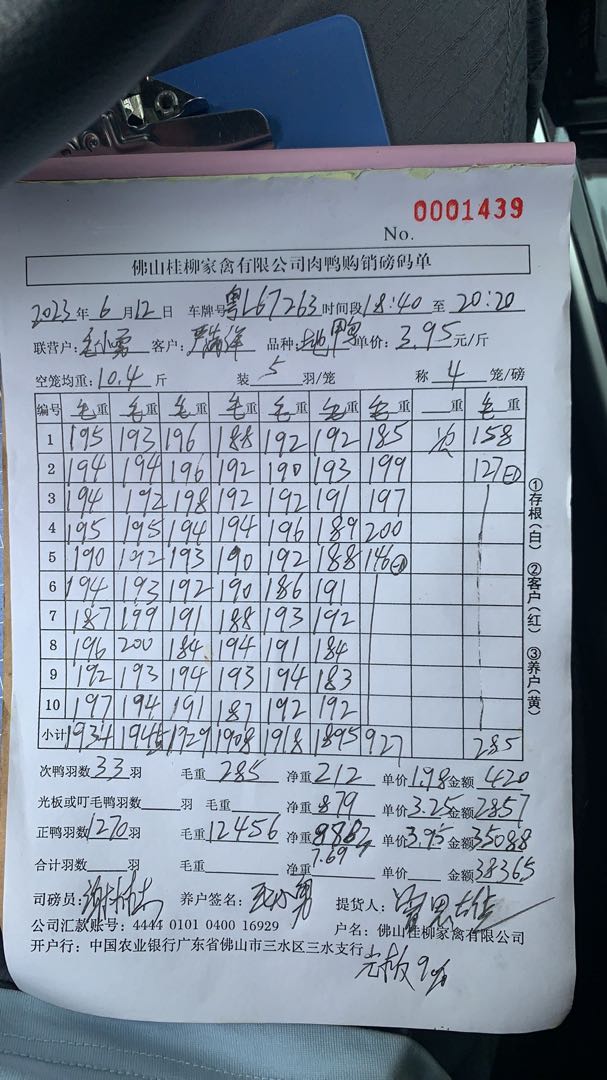 0001439
No.
佛山桂柳家禽有限公司肉鸭购销磅码单
2023年6月12日 车牌号粤L67263时间段18:40至20:20
联营户: 客户: 品种: 单价:3.95元/斤
空笼均重:10.4斤 装5羽/笼 称4笼/磅
编号 毛重 毛重 毛重 毛重 毛重 毛重 毛重 重 毛重
1 195 193 196 188 192 192 185 次 158
2 194 194 196 192 190 193 199 127
3 194 192 198 192 192 191 197
4 195 195 194 194 196 189 200
5 190 192 193 190 192 188 146
6 194 193 192 190 186 191
7 187 199 191 188 193 192
8 196 200 184 194 191 184
9 192 193 194 193 194 183
10 197 194 191 187 192 192
小计 1934 1945 1929 1908 1918 1895 927 285
①存根(白) ②客户(红) ③养户(黄)
次鸭羽数33羽 毛重285 净重212 单价1.98金额420
光板或叮毛鸭羽数 羽 毛重 净重879 单价3.25金额2857
正鸭羽数1270羽 毛重12456 净重 单价3.95金额35088
7.69
合计羽数 羽 毛重 净重 单价 金额38365
司磅员: 养户签名: 提货人:
公司汇款账号:4444 0101 0400 16929 户名:佛山桂柳家禽有限公司
开户行:中国农业银行广东省佛山市三水区三水支行
光板9%